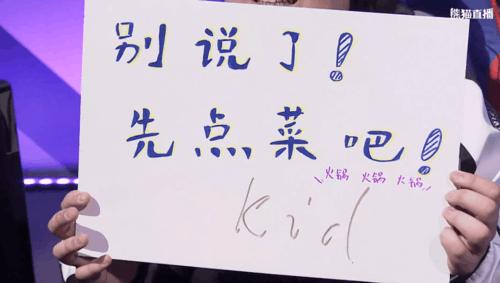 熊猫直播
别说了!
先点菜吧!
火锅 火锅 火锅
Kid